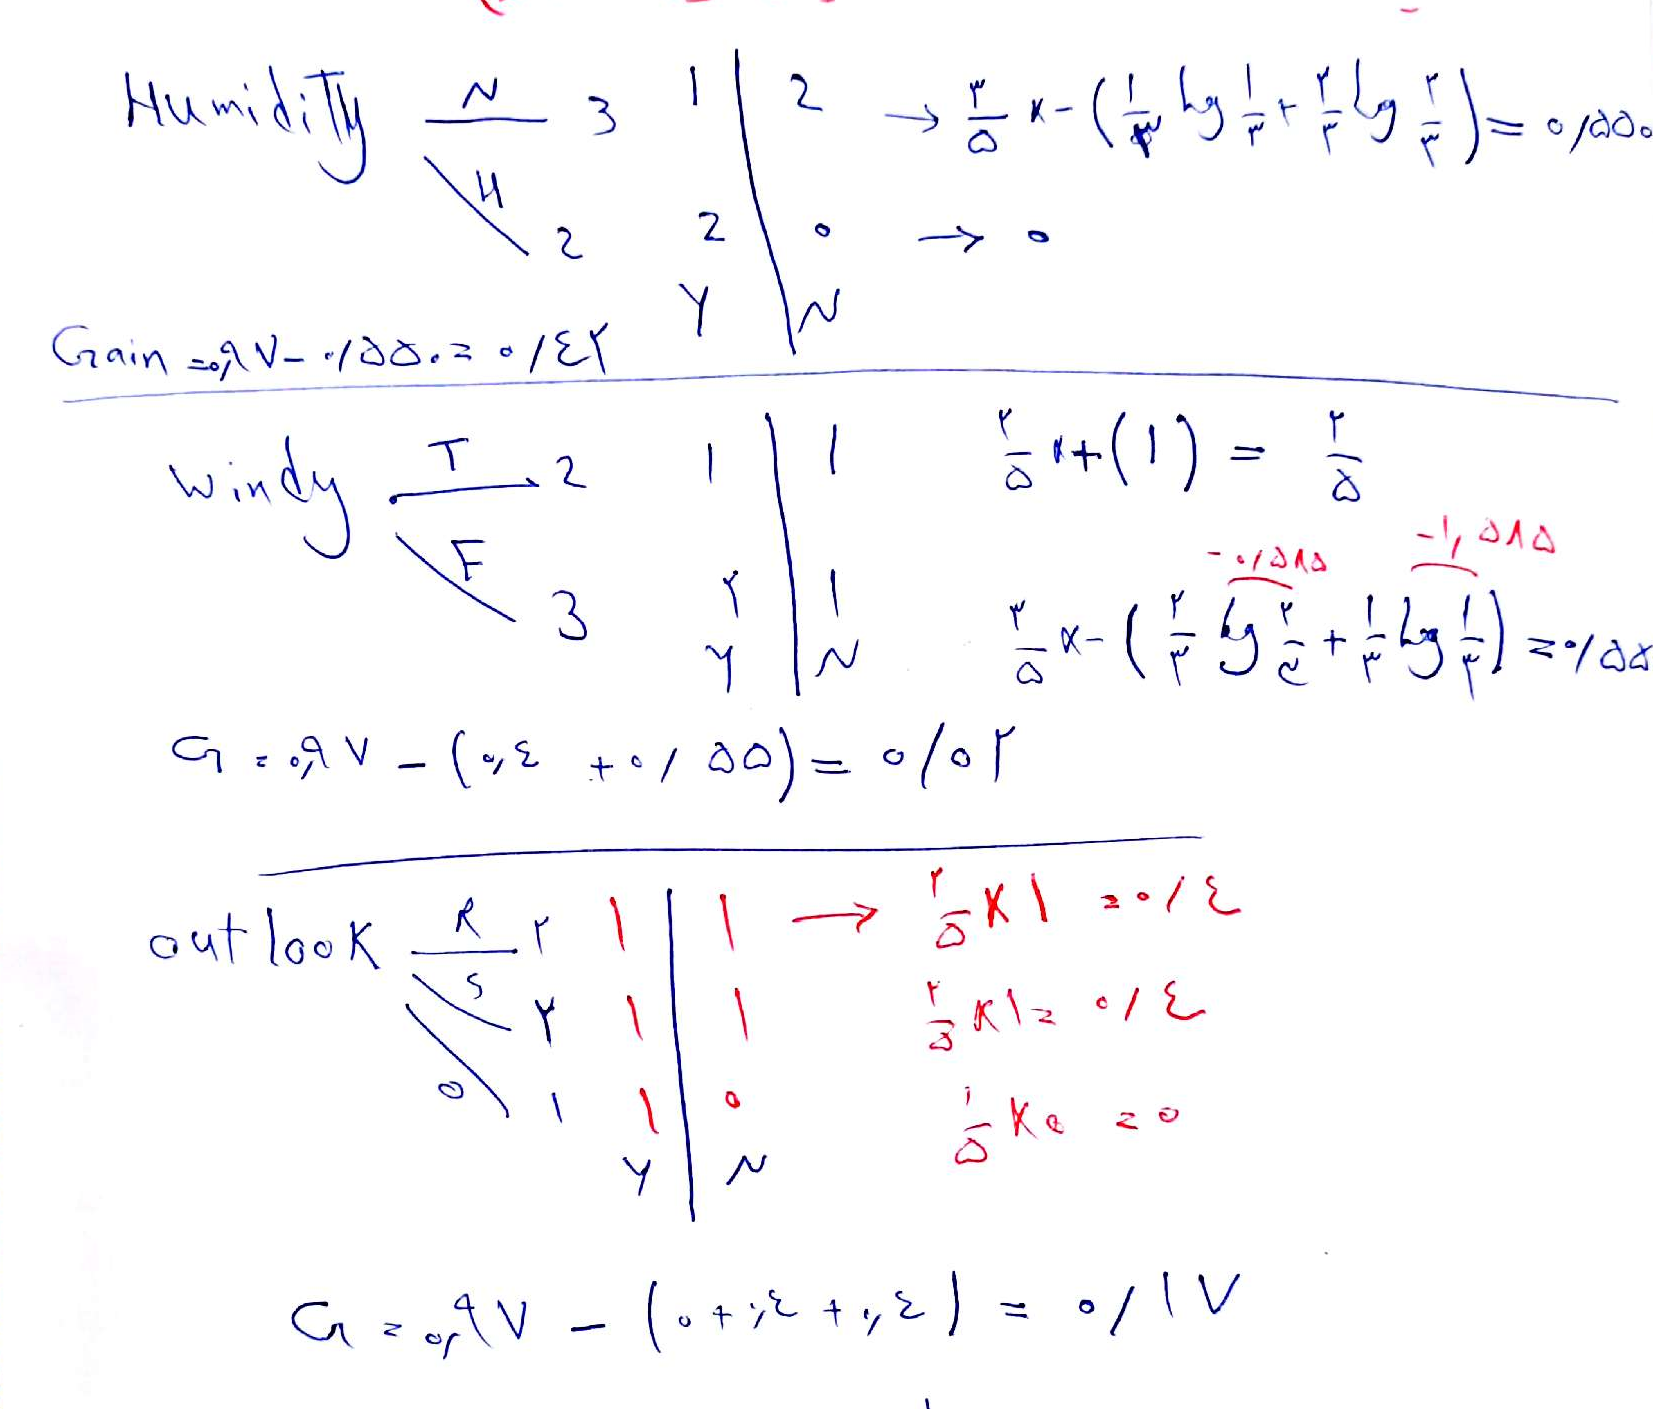 Humidity N 3 1 | 2 → ۳/۵ × - (۱/۳ lg ۱/۳ + ۲/۳ lg ۲/۳) = ۰/۵۵۰
H 2 2 | ۰ → ۰
Y | N
Gain = ۰٫۹۷ - ۰/۵۵۰ = ۰/٤۲
windy T 2 1 | 1 ۲/۵ × + (۱) = ۲/۵
-۰/۵۸۵ -۱٫۵۸۵
F 3 ۲ | 1 ۳/۵ × - (۲/۳ lg ۲/۳ + ۱/۳ lg ۱/۳) = ۰/۵۵
Y | N
G = ۰٫۹۷ - (۰٫٤ + ۰/۵۵) = ۰/۰۲
outlook R ۲ ۱ | ۱ → ۲/۵ × ۱ = ۰/٤
S ۲ ۱ | ۱ ۲/۵ × ۱ = ۰/٤
O ۱ ۱ | ۰ ۱/۵ × ۰ = ۰
Y | N
G = ۰٫۹۷ - (۰ + ۰٫٤ + ۰٫٤) = ۰/۱۷